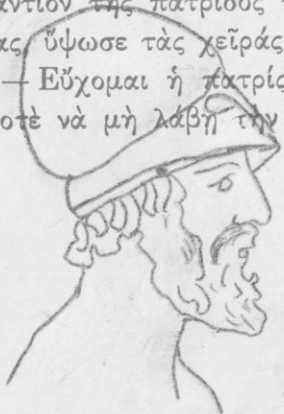 αντίον τῆς πατρίδος
ας ὕψωσε τὰς χεῖράς
— Εὔχομαι ἡ πατρίς
οτὲ νὰ μὴ λάβῃ τὴν